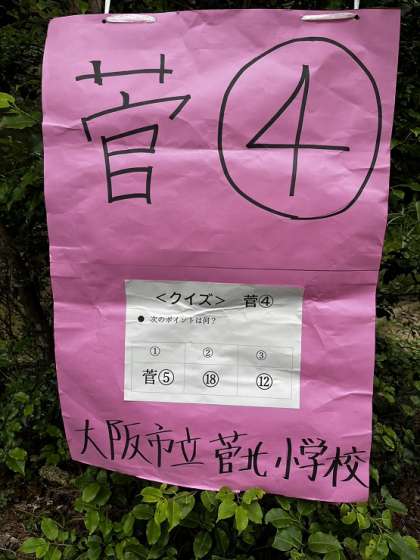 菅④
<クイズ> 菅④
● 次のポイントは何?
① ② ③
菅⑤ ⑱ ⑫
大阪市立菅北小学校